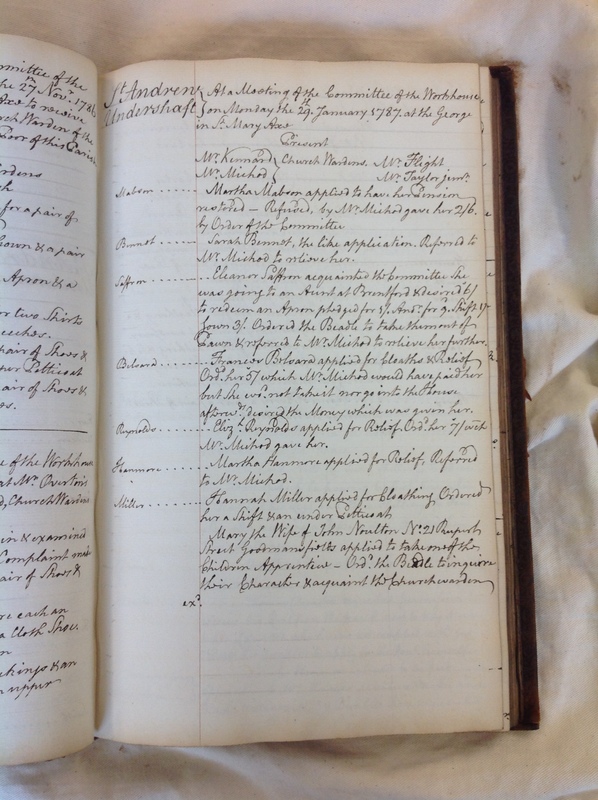 mmittee of the
he 27th Novr. 1786
Axe to receive
rch Warden of the
Poor of this Parish
ardens
for a pair of
Gown & a pair
Apron & a
r two Shirts
eeches.
pair of Shoes &
per Petticoat
air of Shoes &
es.
e of the Workhouse
at Mr. Overton's
Church Wardens
in & examined
Complaint mad
air of Shoes &
re each an
a Cloth Shoe.
n
kings & an
upper
St Andrew At a Meeting of the Committee of the Workhouse
Undershaft on Monday the 29th January 1787. at the George
in St. Mary Axe
Present
Mr. Kennard Church Wardens. Mr. Flight
Mr. Michod Mr. Taylor junr.
Mabson ...... Martha Mabson applied to have her Pension
restored – Refused, by Mr. Michod gave her 2/6.
by Order of the Committee
Bennet ...... Sarah Bennet, the like application. Referred to
Mr. Michod to relieve her.
Saffron ...... Eleanor Saffron acquainted the Committee she
was going to an Aunt at Brentford & desired 6/
to redeem an Apron pledged for 1/. Anor. for 9. Shift 1/
Gown 3/. Ordered the Beadle to take them out of
Pawn & referred to Mr. Michod to relieve her further.
Beloard ...... Frances Beloard applied for Cloaths & Relief
Ordd. her 5/ which Mr. Michod would have paid her
but she wod. not take it nor go into the House
afterwds. desired the Money which was given her.
Reynolds ...... Elizth. Reynolds applied for Relief. Ordd. her 7/ wch
Mr. Michod gave her.
Hanmore ...... Martha Hanmore applied for Relief, Referred
to Mr. Michod.
Miller ...... Hannah Miller applied for Cloathing Ordered
her a Shift & an under Petticoat
Mary the Wife of John Noulton No. 21 Rupert
Street Goodmansfields applied to take one of the
Children Apprentice – Ordd. the Beadle to inquire
their Character & acquaint the Churchwarden
exd.